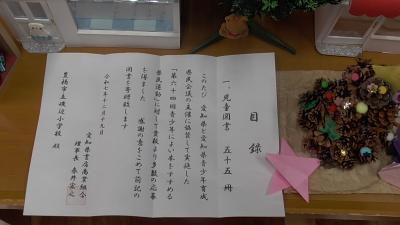 目録
一、児童図書 五十五冊
このたび 愛知県と愛知県青少年育成
県民会議の主催に協賛して実施した
「第六十四回青少年によい本をすすめる
県民運動」に対して貴校より多数の応募
を得ました 感謝の意をこめて前記の
図書を寄贈致します
令和七年十二月十九日
愛知県書店商業組合
理事長 春井宏之
豊橋市立磯辺小学校 殿